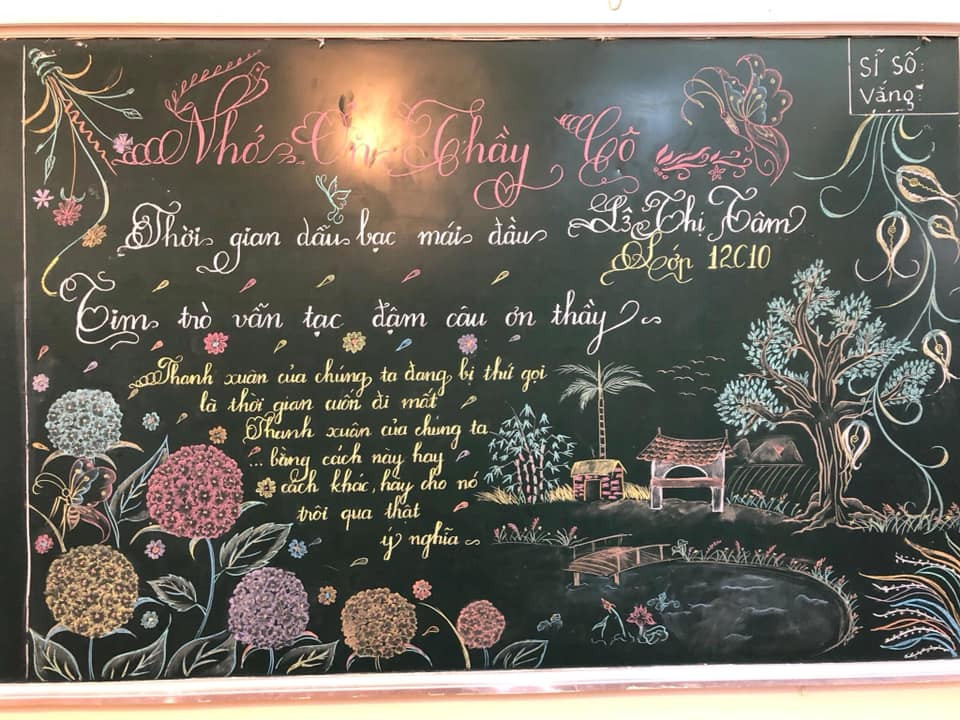 Nhớ Ơn Thầy Cô
Sĩ Số:
Vắng:
Thời gian dẫu bạc mái đầu
Lê Thị Tâm
Lớp 12C10
Tim trò vẫn tạc đậm câu ơn thầy
Thanh xuân của chúng ta đang bị thứ gọi
là thời gian cuốn đi mất
Thanh xuân của chúng ta
... bằng cách này hay
cách khác, hãy cho nó
trôi qua thật
ý nghĩa